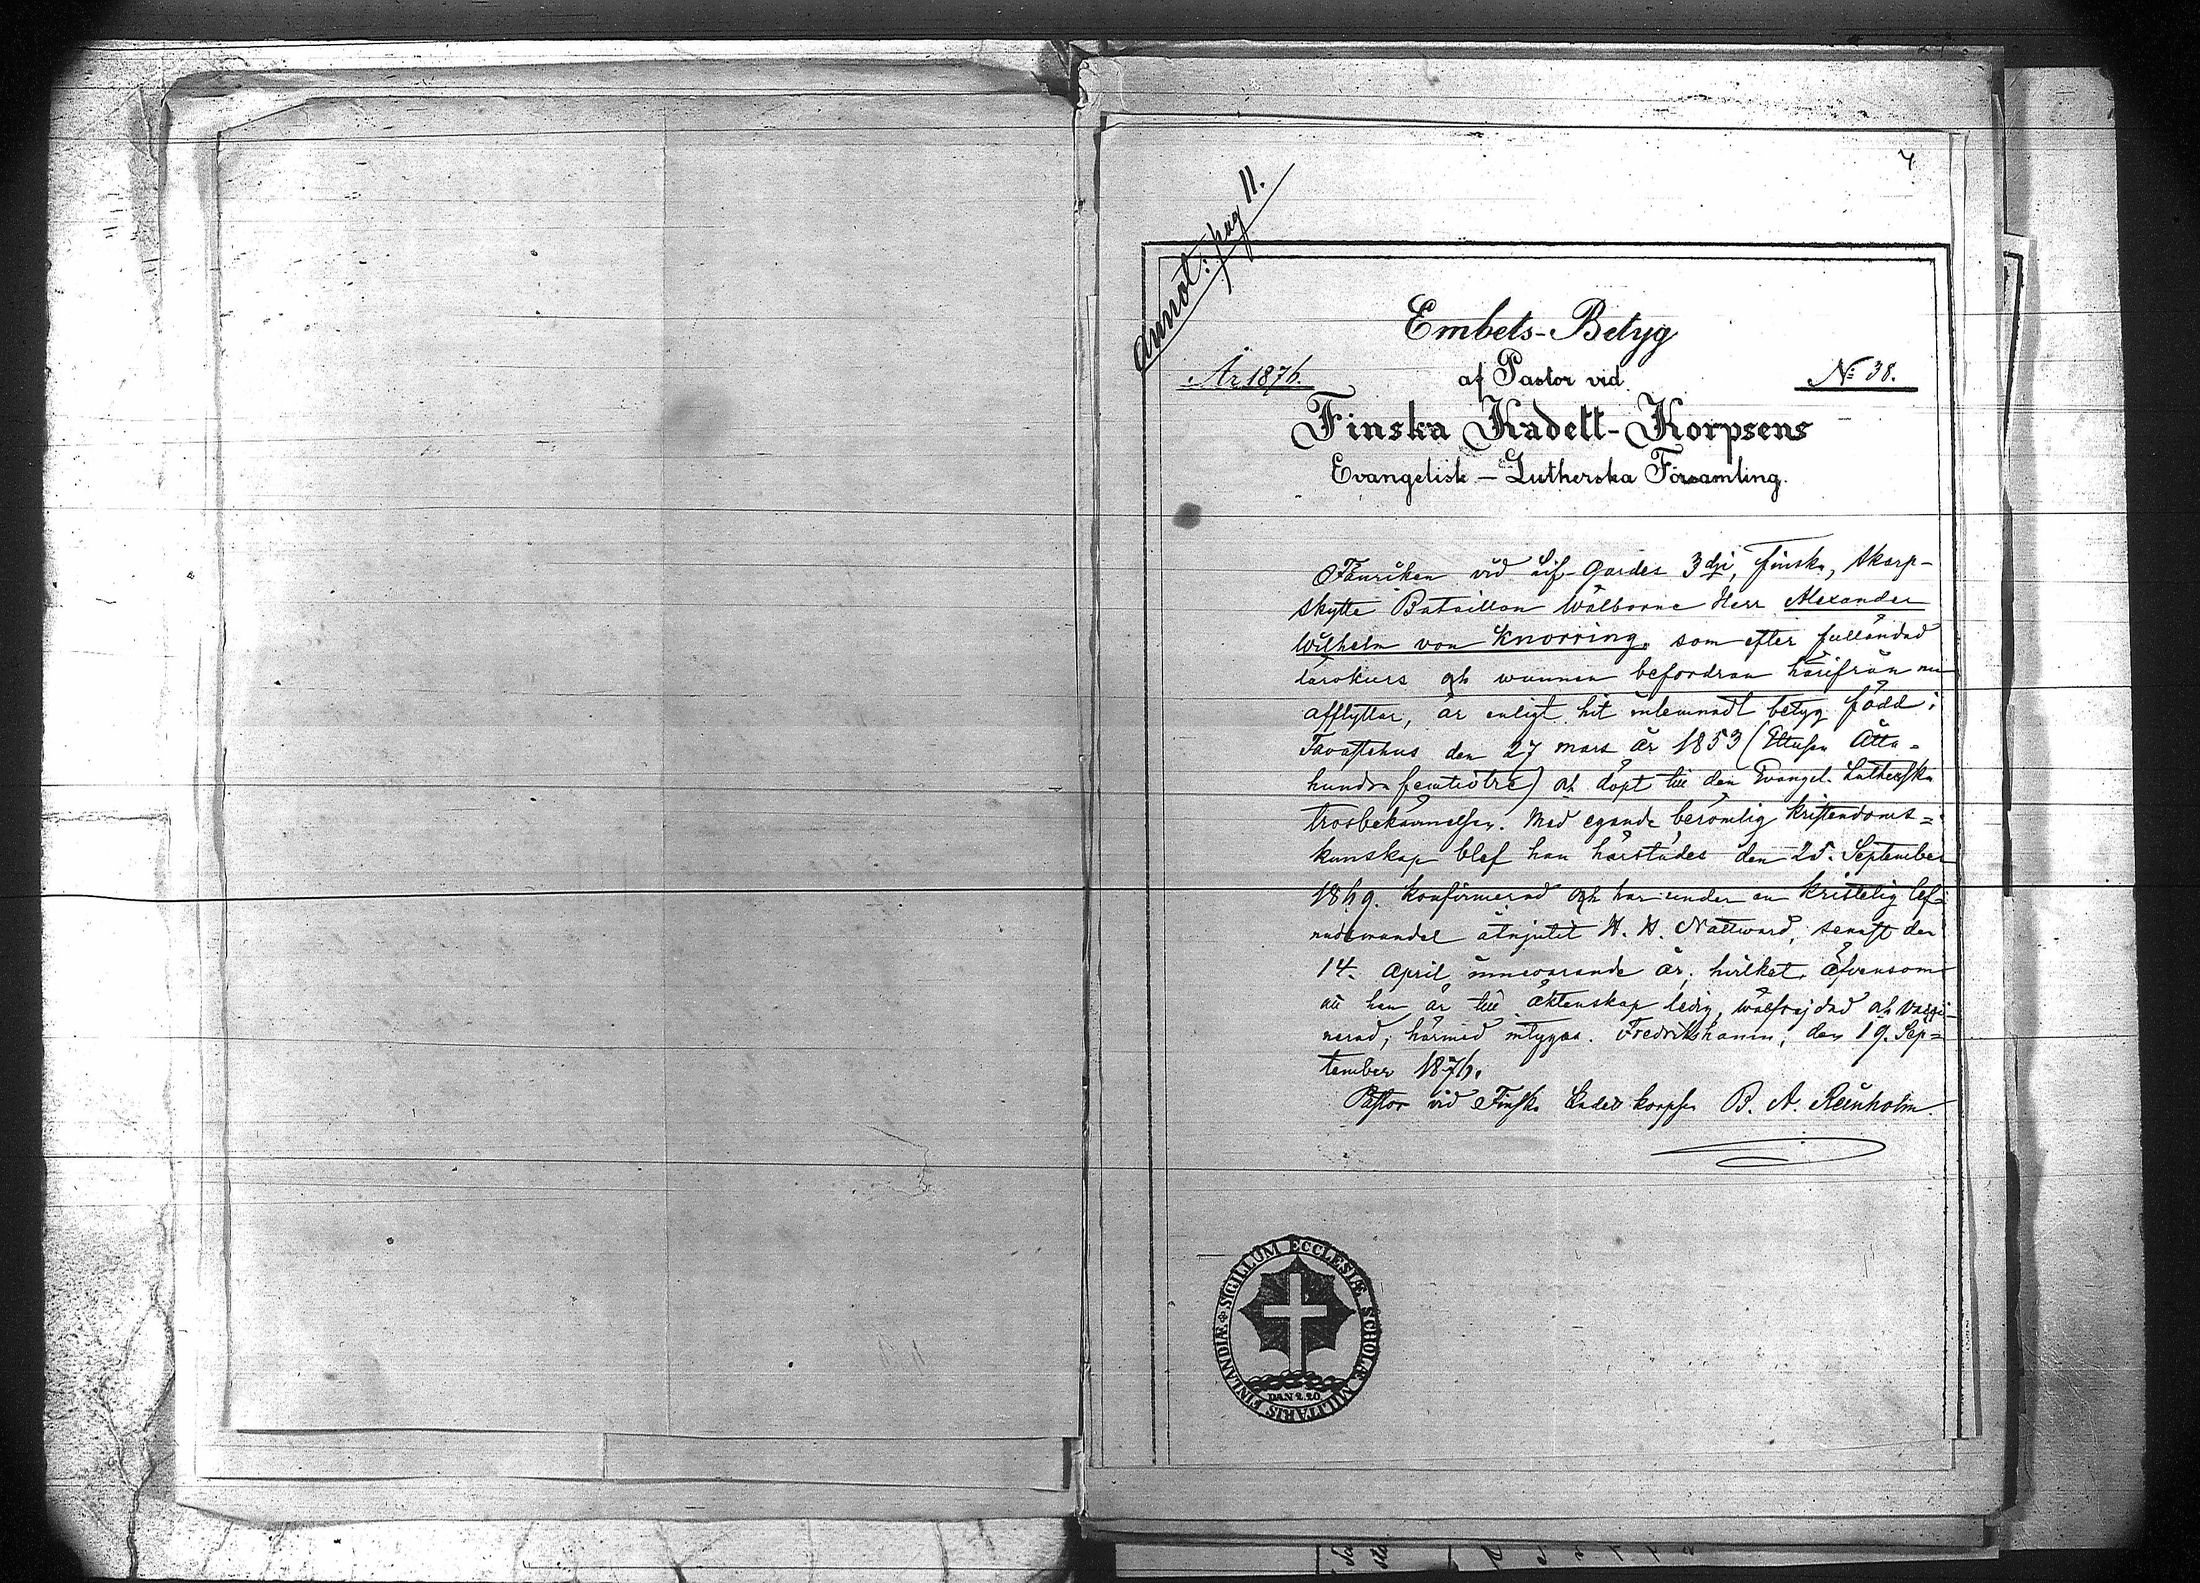 7
annot: pag 11.
Embets-Betyg
År 1876. af Pastor vid № 38.
Finska Kadett-Korpsens
Evangelisk-Lutherska Församling.
Fänriken vid Lif-Gardes 3dje, Finska, Skarp-
skytte Bataillon Wälborne Herr Alexander
Wilhelm von Knorring, som efter fulländad
lärokurs och wunnen befordran härifrån nu
afflyttar, är enligt hit inlemnadt betyg född i
Tavastehus den 27 mars år 1853 (Ettusen Åtta-
hundra femtiotre) och döpt till den Evangel. Lutherska
trosbekännelsen. Med egande berömlig kristendoms=
kunskap blef han härstädes den 25. September
1869. konfirmerad och har under en kristelig lef-
nadswandel åtnjutit H. H. Nattward, senast den
14. April innewarande år; hvilket, äfvensom
att han är till äktenskap ledig, wälfrejdad och vacci-
nerad, härmed intygas. Fredrikshamn, den 19. Sep=
tember 1876.
Pastor vid Finska Kadettkorpsen B. A. Reinholm.
SIGILLUM ECCLESIÆ SCHOLÆ MILITARIS FINLANDIÆ
DAN 2.20